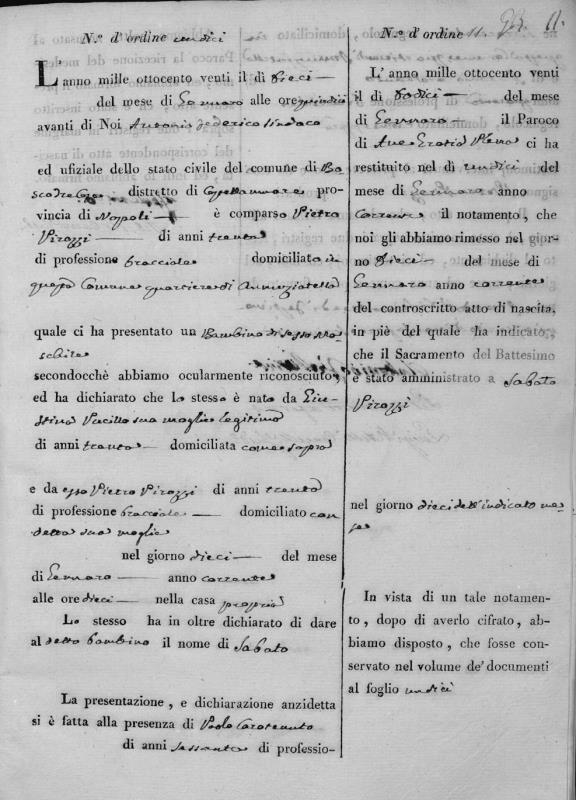 N.º d'ordine undici
L'anno mille ottocento venti il dì Dieci
del mese di Gennaro alle ore quindici
avanti di Noi Antonio Federico Sindaco
ed ufiziale dello stato civile del comune di Bo
scotrecase distretto di Castellammare pro-
vincia di Napoli è comparso Pietro
Pirozzi di anni trenta
di professione bracciale domiciliato in
questo Comune quartiere di Annunziatella
quale ci ha presentato un Bambino di sesso Ma
schile
secondocchè abbiamo ocularmente riconosciuto,
ed ha dichiarato che lo stesso è nato da Giu
stina sua moglie legitima
di anni trenta domiciliata come sopra
e da esso Pietro Pirozzi di anni trenta
di professione bracciale domiciliato con
detta sua moglie
nel giorno dieci del mese
di Gennaro anno corrente
alle ore dieci nella casa propria
Lo stesso ha in oltre dichiarato di dare
al detto bambino il nome di Sabato
La presentazione, e dichiarazione anzidetta
si è fatta alla presenza di Paolo Carotenuto
di anni sessanta di professio-
N.º d'ordine 11.
11.
L'anno mille ottocento venti
il dì Dodici del mese
di Gennaro il Paroco
di Ave Gratia Plena ci ha
restituito nel dì undici del
mese di Gennaro anno
corrente il notamento, che
noi gli abbiamo rimesso nel gior-
no Dieci del mese di
Gennaro anno corrente
del controscritto atto di nascita,
in piè del quale ha indicato,
che il Sacramento del Battesimo
è stato amministrato a Sabato
Pirozzi
nel giorno dieci dell'indicato me-
se
In vista di un tale notamen-
to, dopo di averlo cifrato, ab-
biamo disposto, che fosse con-
servato nel volume de' documenti
al foglio undici